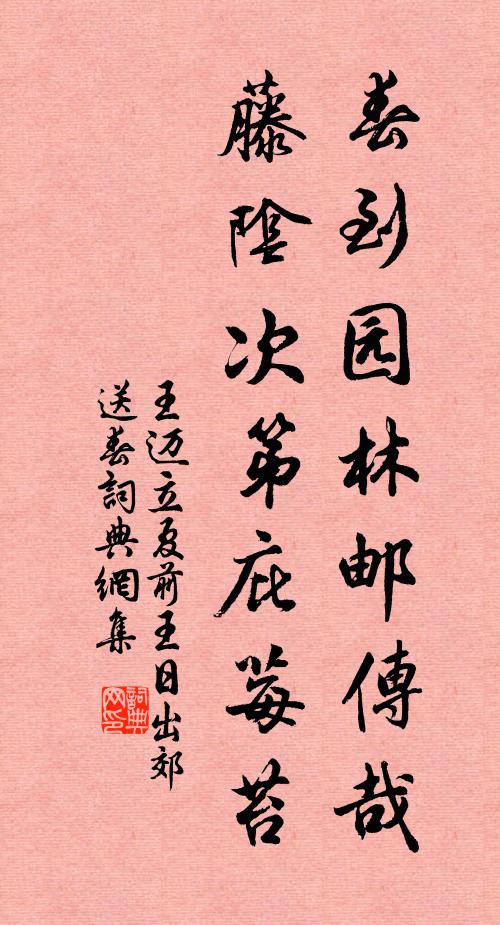 春到园林邮傳哉
藤陰次第庇莓苔
王迈立夏前王日出郊
送春詞典網集
詞典网印